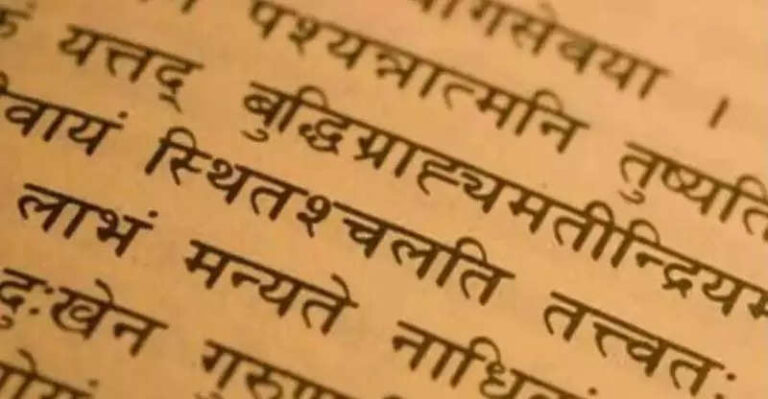 योगसेवया ।
पश्यन्नात्मनि तुष्यति
यत्तद् बुद्धिग्राह्यमतीन्द्रियम
वायं स्थितश्चलति तत्त्वतः
लाभं मन्यते नाधिकं
दुःखेन